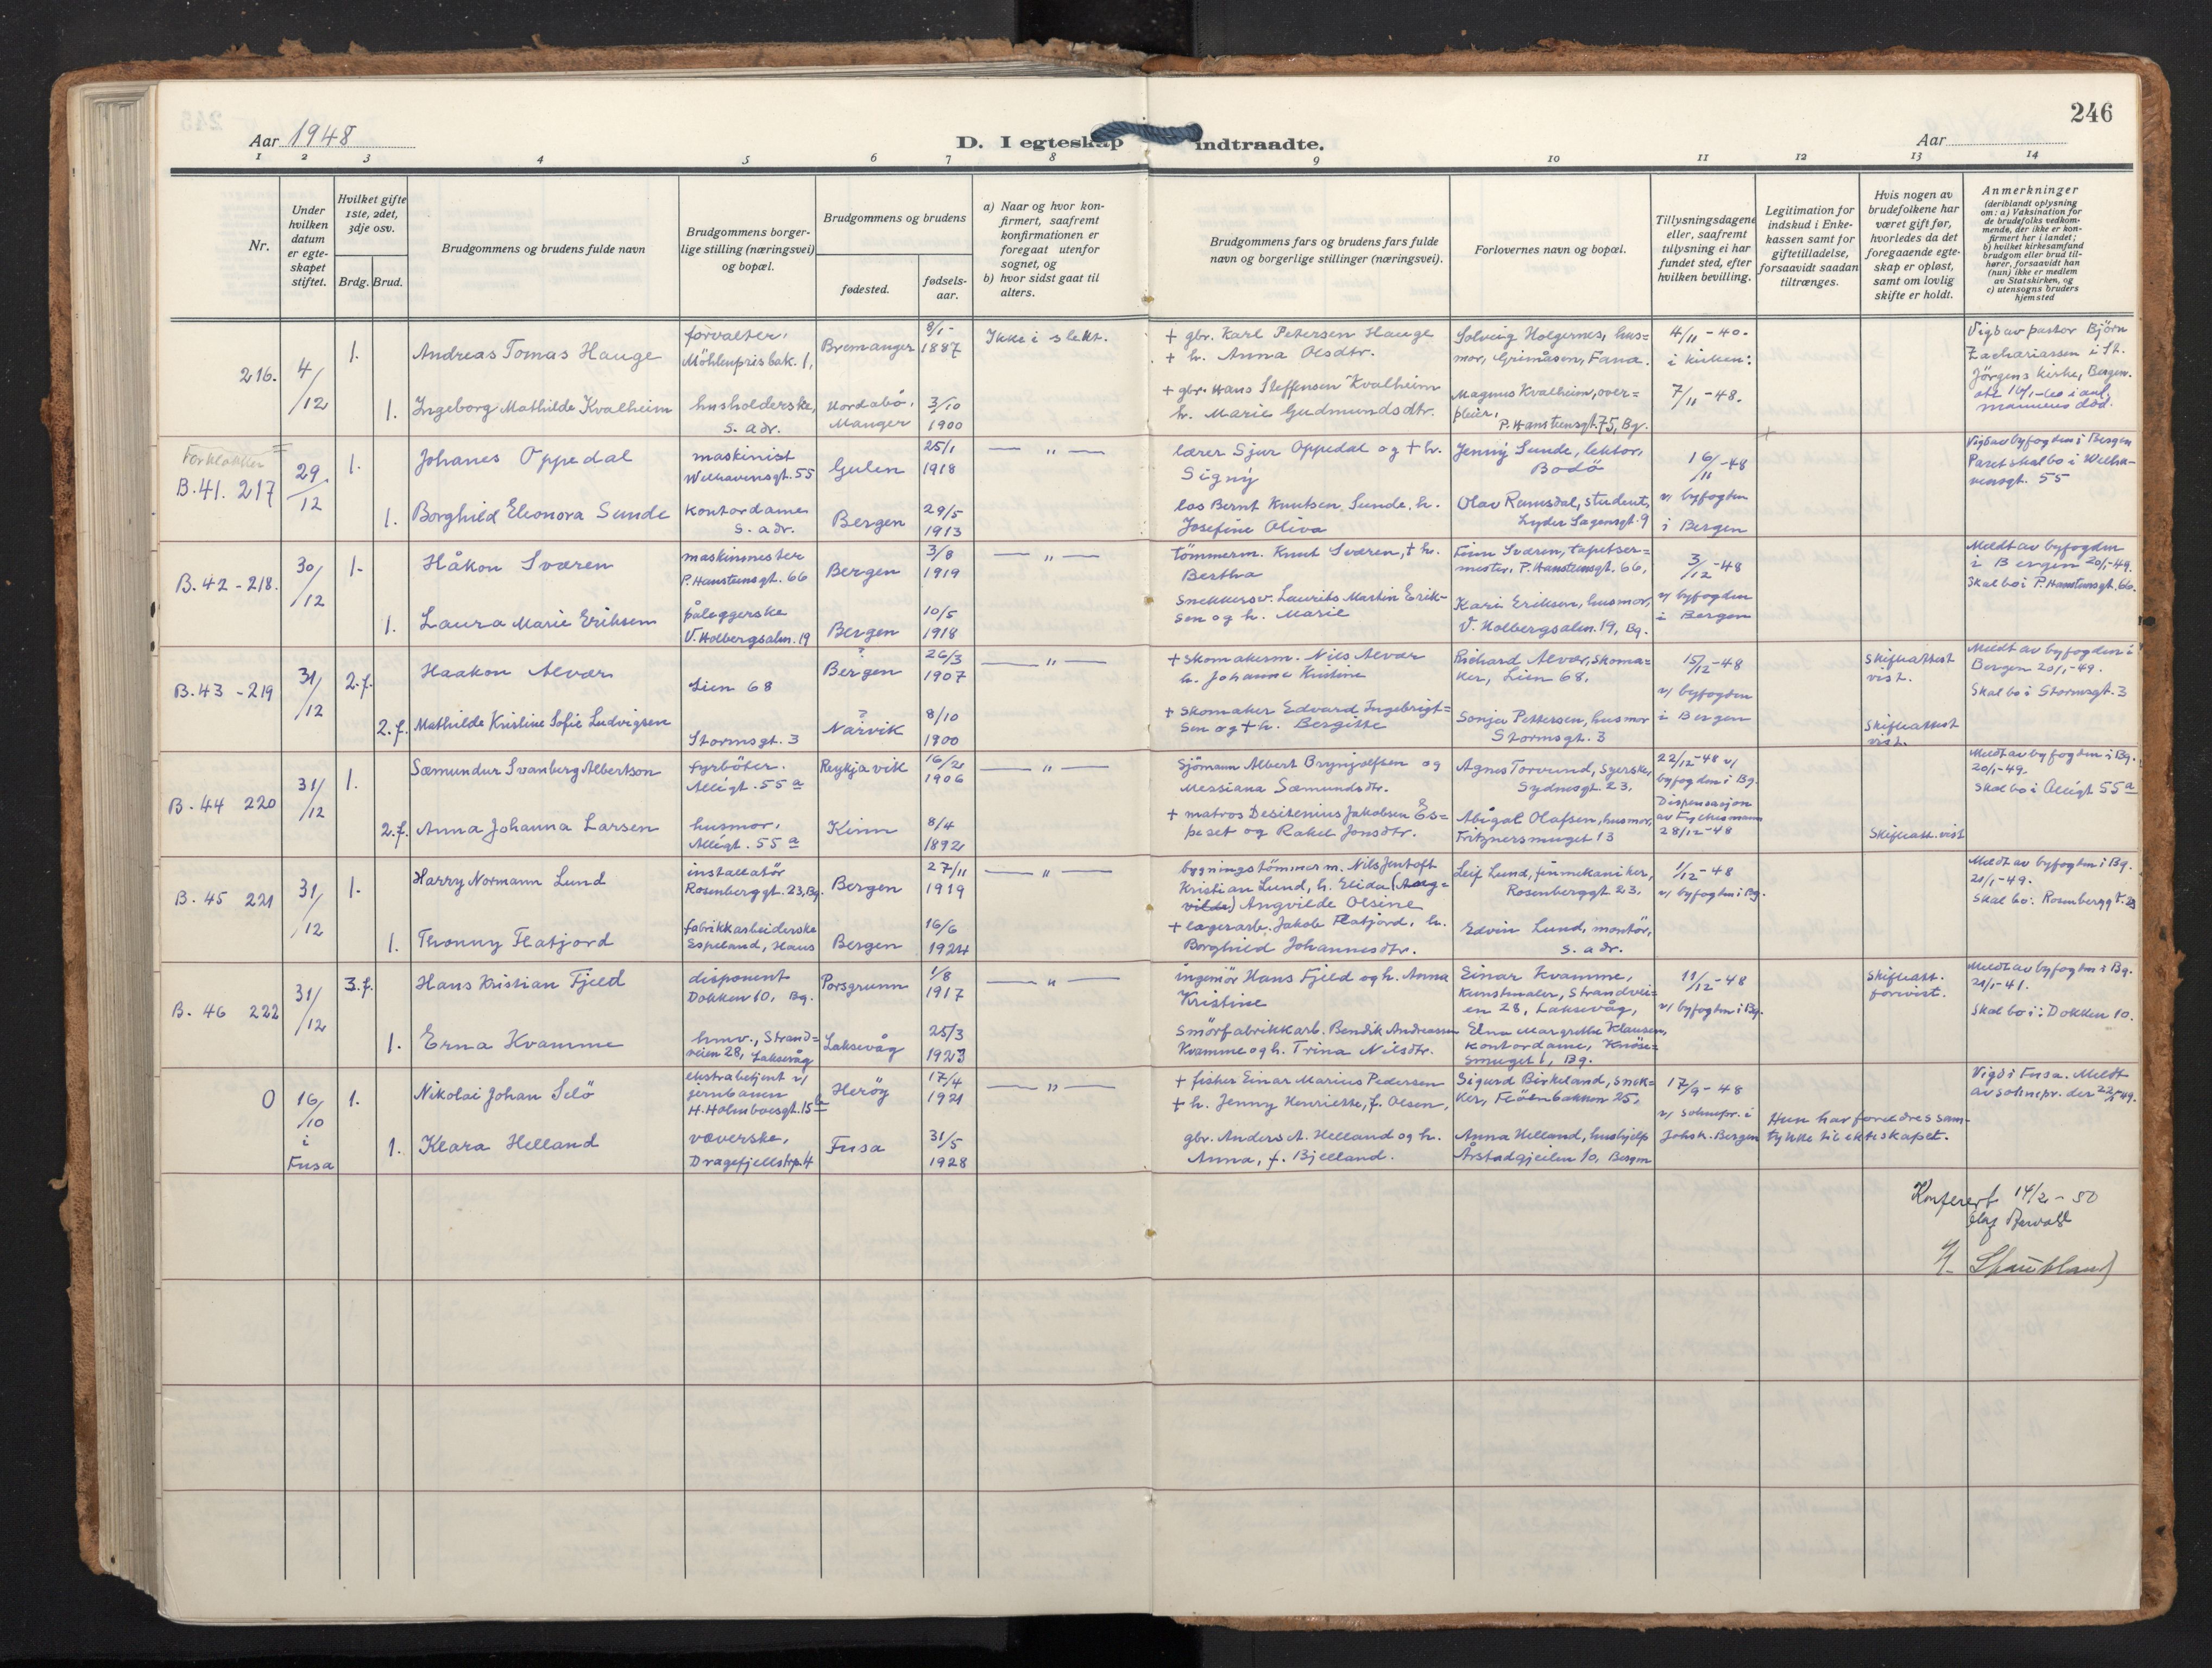 246
Aar 1948
D. I egteskap indtraadte.
Aar
1 2 3 4 5 6 7 8 9 10 11 12 13 14
Nr.
Under hvilken datum er egteskapet stiftet.
Hvilket gifte 1ste, 2det, 3dje osv.
Brdg. Brud.
Brudgommens og brudens fulde navn
Brudgommens borgerlige stilling (næringsvei) og bopæl.
Brudgommens og brudens
fødested.
fødselsaar.
a) Naar og hvor konfirmert, saafremt konfirmationen er foregaat utenfor sognet, og
b) hvor sidst gaat til alters.
Brudgommens fars og brudens fars fulde navn og borgerlige stillinger (næringsvei).
Forlovernes navn og bopæl.
Tillysningsdagene eller, saafremt tillysning ei har fundet sted, efter hvilken bevilling.
Legitimation for indskud i Enkekassen samt for giftetilladelse, forsaavidt saadan tiltrænges.
Hvis nogen av brudefolkene har været gift før, hvorledes da det foregaaende egteskap er opløst, samt om lovlig skifte er holdt.
Anmerkninger
(deriblandt oplysning om: a) Vaksination for de brudefolks vedkommende, der ikke er konfirmert her i landet;
b) hvilket kirkesamfund brudgom eller brud tilhører, forsaavidt han (hun) ikke er medlem av Statskirken, og
c) utensogns bruders hjemsted
216. 4/12 1. Andreas Tomas Hauge
forvalter, Möhlenprisbak. 1,
Bremanger 8/1- 1887
Ikke i slekt.
+ gbr. Karl Petersen Hauge
+ h. Anna Olsdtr.
Solveig Holgernes, husmor, Grimåsen, Fana.
4/11-40. i kirken:
Vigd av pastor Björn Zachariassen i St. Jörgens kirke, Bergen.
mannens död.
1. Ingeborg Mathilde Kvalheim
husholderske, s. adr.
Nordabö, Manger 3/10 1900
+ gbr. Hans Steffensen Kvalheim
h. Marie Gudmundsdtr.
Magnus Kvalheim, overpleier, P. Hansteensgt. 75, Bg.
7/11-48.
Forklokker
B. 41. 217 29/12 1. Johanes Oppedal
maskinist Welhavensgt. 55
Gulen 25/1 1918
— " —
lærer Sjur Oppedal og + h. Signy
Jenny Sunde, lektor, Bodö
16/11-48 v/ byfogden i Bergen
Vigd av byfogden i Bergen
Paret skal bo i Welhavensgt. 55
1. Borghild Eleonora Sunde
kontordame s. adr.
Bergen 29/5 1913
los Bernt Knutsen Sunde, h. Josefine Oliva
Olav Ramsdal, student, Lyder Sagensgt. 9
B. 42 - 218. 30/12 1. Håkon Sværen
maskinmester P. Hansteensgt. 66
Bergen 3/8 1919
— " —
tömmerm. Knut Sværen, + h. Bertha
Finn Sværen, tapetsermester, P. Hansteensgt. 66,
3/12-48 v/ byfogden i Bergen
Meldt av byfogden i Bergen 20/1-49.
Skal bo i P. Hansteensgt. 66.
1. Laura Marie Eriksen
påleggerske V. Holbergsalm. 19
Bergen 10/5 1918
Snekkersv. Laurits Martin Eriksen og h. Marie
Kari Eriksen, husmor, V. Holbergsalm. 19, Bg.
B. 43 - 219 31/12 2.f. Haakon Alvær
Lien 68
? Bergen 26/3 1907
— " —
+ Skomakerm. Nils Alvær
h. Johanne Kristine
Richard Alvær, skomaker, Lien 68.
15/12-48 v/ byfogden i Bergen
Skifteattest vist.
Meldt av byfogden i Bergen 20/1-49.
Skal bo i Stormsgt. 3
2.f. Mathilde Kristine Sofie Ludvigsen
Stormsgt. 3
? Narvik 8/10 1900
+ Skomaker Edvard Ingebrigtsen og + h. Bergitte
Sonja Pettersen, husmor Stormsgt. 3
Skifteattest vist.
B. 44 220 31/12 1. Sæmundur Svanberg Albertson
fyrböter. Allégt. 55 a
Reykjavik 16/2 1906
— " —
Sjömann Albert Brynjolfsen og Messiana Sæmundsdtr.
Agnes Torvund, syerske, Sydnesgt. 23.
22/12-48 v/ byfogden i Bg. Dispensasjon av Fylkesmann 28/12-48
Meldt av byfogden i Bg. 20/1-49.
Skal bo i Allégt 55a
2.f. Anna Johanna Larsen
husmor, Allégt. 55 a
Kinn 8/4 1892
+ matros Desiterius Jakobsen Espeset og Rakel Jonsdtr.
Abigal Olafsen, husmor, Fritznersmuget 13
Skifteatt. vist
B. 45 221 31/12 1. Harry Normann Lund
installatör Rosenberggt. 23, Bg.
Bergen 27/11 1919
— " —
bygningstömmerm. Nils Jentoft Kristian Lund, h. Elida (Angvilde) Angvilde Olsine
Leif Lund, finmekaniker, Rosenberggt 23.
1/12-48 v/ byfogden i Bg.
Meldt av byfogden i Bg. 21/1-49.
Skal bo: Rosenberggt. 23
1. Thronny Flatjord
fabrikkarbeiderske Espeland, Haus
Bergen 16/6 1924
+ lagerarb. Jakob Flatjord, h. Borghild Johannesdtr.
Edvin Lund, montör, s. adr.
B. 46 222 31/12 3.f. Hans Kristian Fjeld
disponent Dokken 10, Bg.
Porsgrunn 1/8 1917
— " —
ingeniör Hans Fjeld og h. Anna Kristine
Einar Kvamme, Kunstmaler, Strandveien 28, Laksevåg,
11/12-48 v/ byfogden i Bg.
Skifteatt. forevist.
Meldt av byfogden i Bg. 21/1-41.
Skal bo i: Dokken 10.
1. Erna Kvamme
hmv., Strandveien 28, Laksevåg
Laksevåg 25/3 1923
Smörfabrikkarb. Bendik Andreassen Kvamme og h. Trina Nilsdtr.
Elna Margrethe Klausen, kontordame, Knösesmuget 1, Bg.
0 16/10 i Fusa 1. Nikolai Johan Selö
ekstrabetjent v/ jernbanen H. Holmboesgt. 15 b
Heröy 17/4 1921
— " —
+ fisher Einar Marius Pedersen
+ h. Jenny Henriette, f. Olsen,
Sigurd Birkeland, snekker, Flöenbakken 25,
17/9-48 v/ soknepr. i Johsk. Bergen
Hun har foreldres samtykke til ekteskapet.
Vigd i Fusa. Meldt av soknepr. der 22/1 49.
1. Klara Helland
væverske, Dragefjellstrp. 4
Fusa 31/5 1928
gbr. Anders A. Helland og h. Anna, f. Bjelland.
Anna Helland, hushjelp Årstadgjeilen 10, Bergen
Konferert 14/2-50